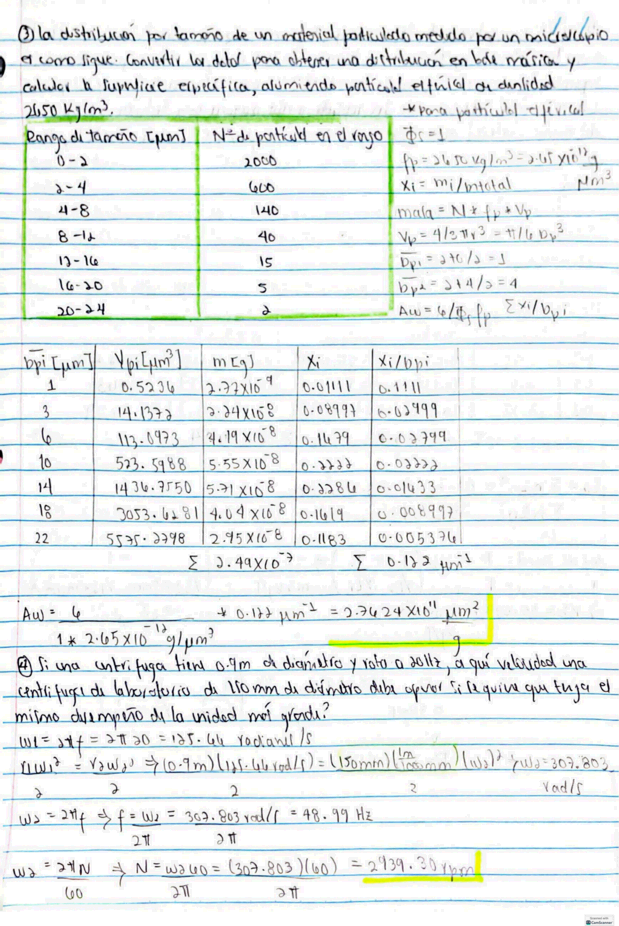 ③ La distribución por tamaño de un material particulado medido por un microscópio
es como sigue. Convertir los datos para obtener una distribución en base másica y
calcular la superficie específica, asumiendo partículas esféricas de densidad
2650 Kg/m³.
*para partículas esféricas
Rango de tamaño [μm] N° de partículas en el rango
Φs = 1
0-2 2000
ρp = 2650 kg/m³ = 2.65 x10⁻¹² g/μm³
2-4 600
Xi = mi/mtotal
4-8 140
masa = N * ρp * Vp
8-12 40
Vp = 4/3 πr³ = π/6 Dp³
12-16 15
Dp1 = 2+0/2 = 1
16-20 5
Dp2 = 2+4/2 = 4
20-24 2
Aw = 6/Φs ρp Σ Xi/Dpi
Dpi [μm] Vpi [μm³] m [g] Xi Xi/Dpi
1 0.5236 2.77x10⁻⁹ 0.01111 0.1111
3 14.1372 2.24x10⁻⁸ 0.08997 0.02999
6 113.0973 4.19x10⁻⁸ 0.1679 0.02799
10 523.5988 5.55x10⁻⁸ 0.2222 0.02222
14 1436.7550 5.71x10⁻⁸ 0.2286 0.01633
18 3053.6281 4.04x10⁻⁸ 0.1619 0.008997
22 5575.2798 2.95x10⁻⁸ 0.1183 0.005376
Σ 2.49x10⁻⁷ Σ 0.122 μm⁻¹
Aw = 6 / 1 * 2.65x10⁻¹² g/μm³ * 0.122 μm⁻¹ = 2.7624x10¹¹ μm²/g
④ Si una centrifuga tiene 0.9m de diámetro y rota a 20Hz, a qué velocidad una
centrifuga de laboratorio de 150mm de diámetro debe operar si se quiere que tenga el
mismo desempeño de la unidad más grande?
ω1 = 2πf = 2π 20 = 125.66 radianes/s
r1ω1² / 2 = r2ω2² / 2 ⇒ (0.9m)(125.66 rad/s) / 2 = (150mm)(1m/1000mm)(ω2)² / 2 ; ω2 = 307.803 rad/s
ω2 = 2πf ⇒ f = ω2/2π = 307.803 rad/s / 2π = 48.99 Hz
ω2 = 2πN/60 ⇒ N = ω2 60/2π = (307.803)(60)/2π = 2939.30 rpm
CamScanner